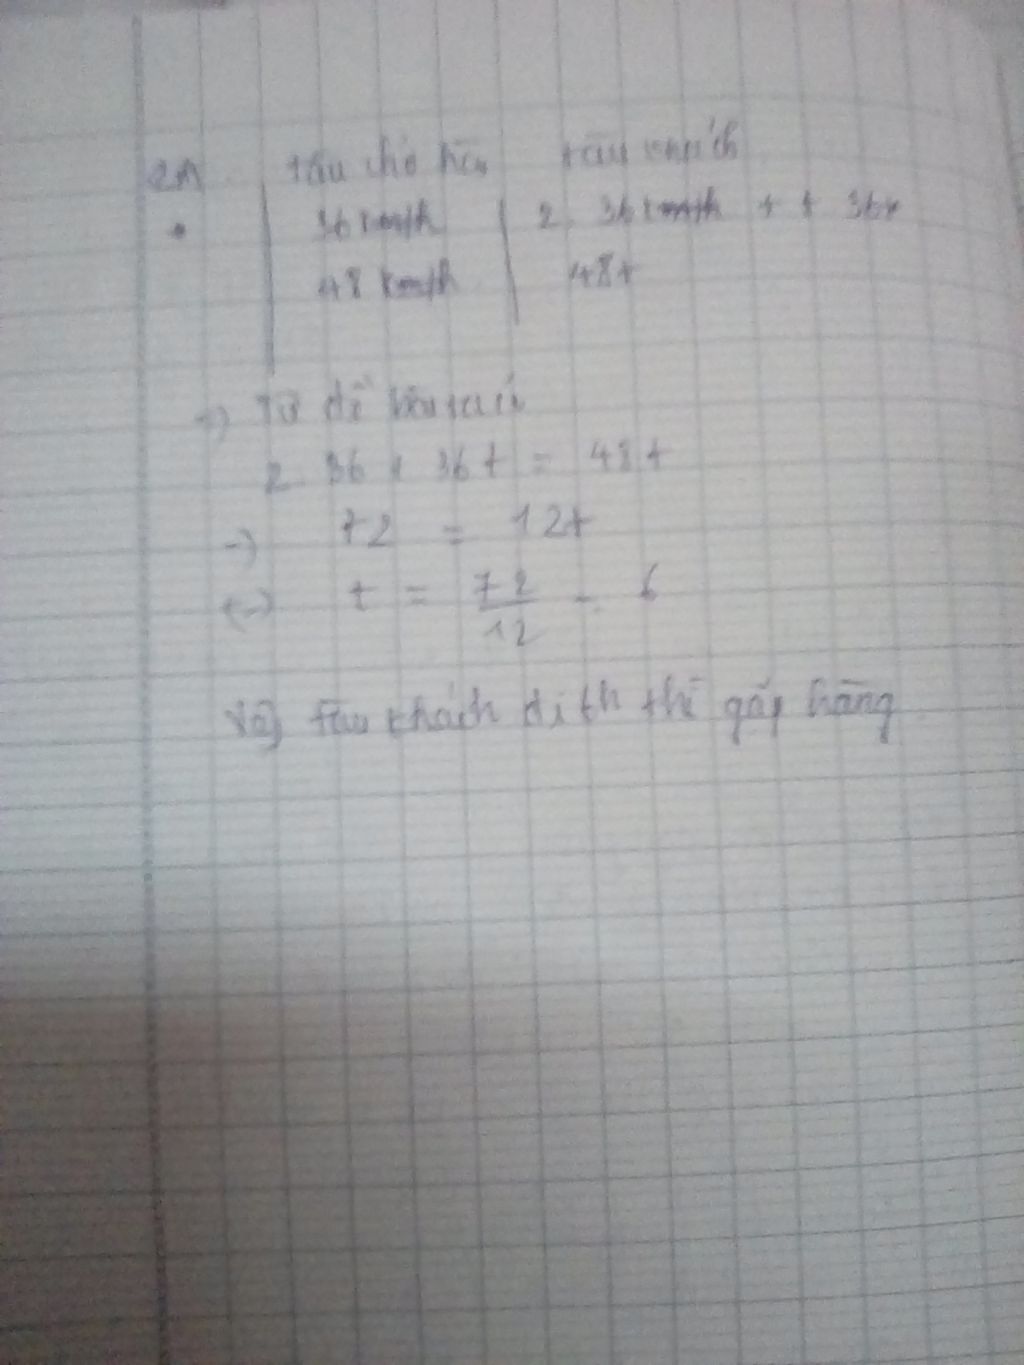 tàu chở hàng tàu khách
36 km/h 2. 36 km/h + 36t
48 km/h 48t
=> Từ đề bài ta có
2. 36 + 36t = 48t
=> 72 = 12t
<=> t = 72/12 = 6
Vậy tàu khách đi th thì gặp hàng